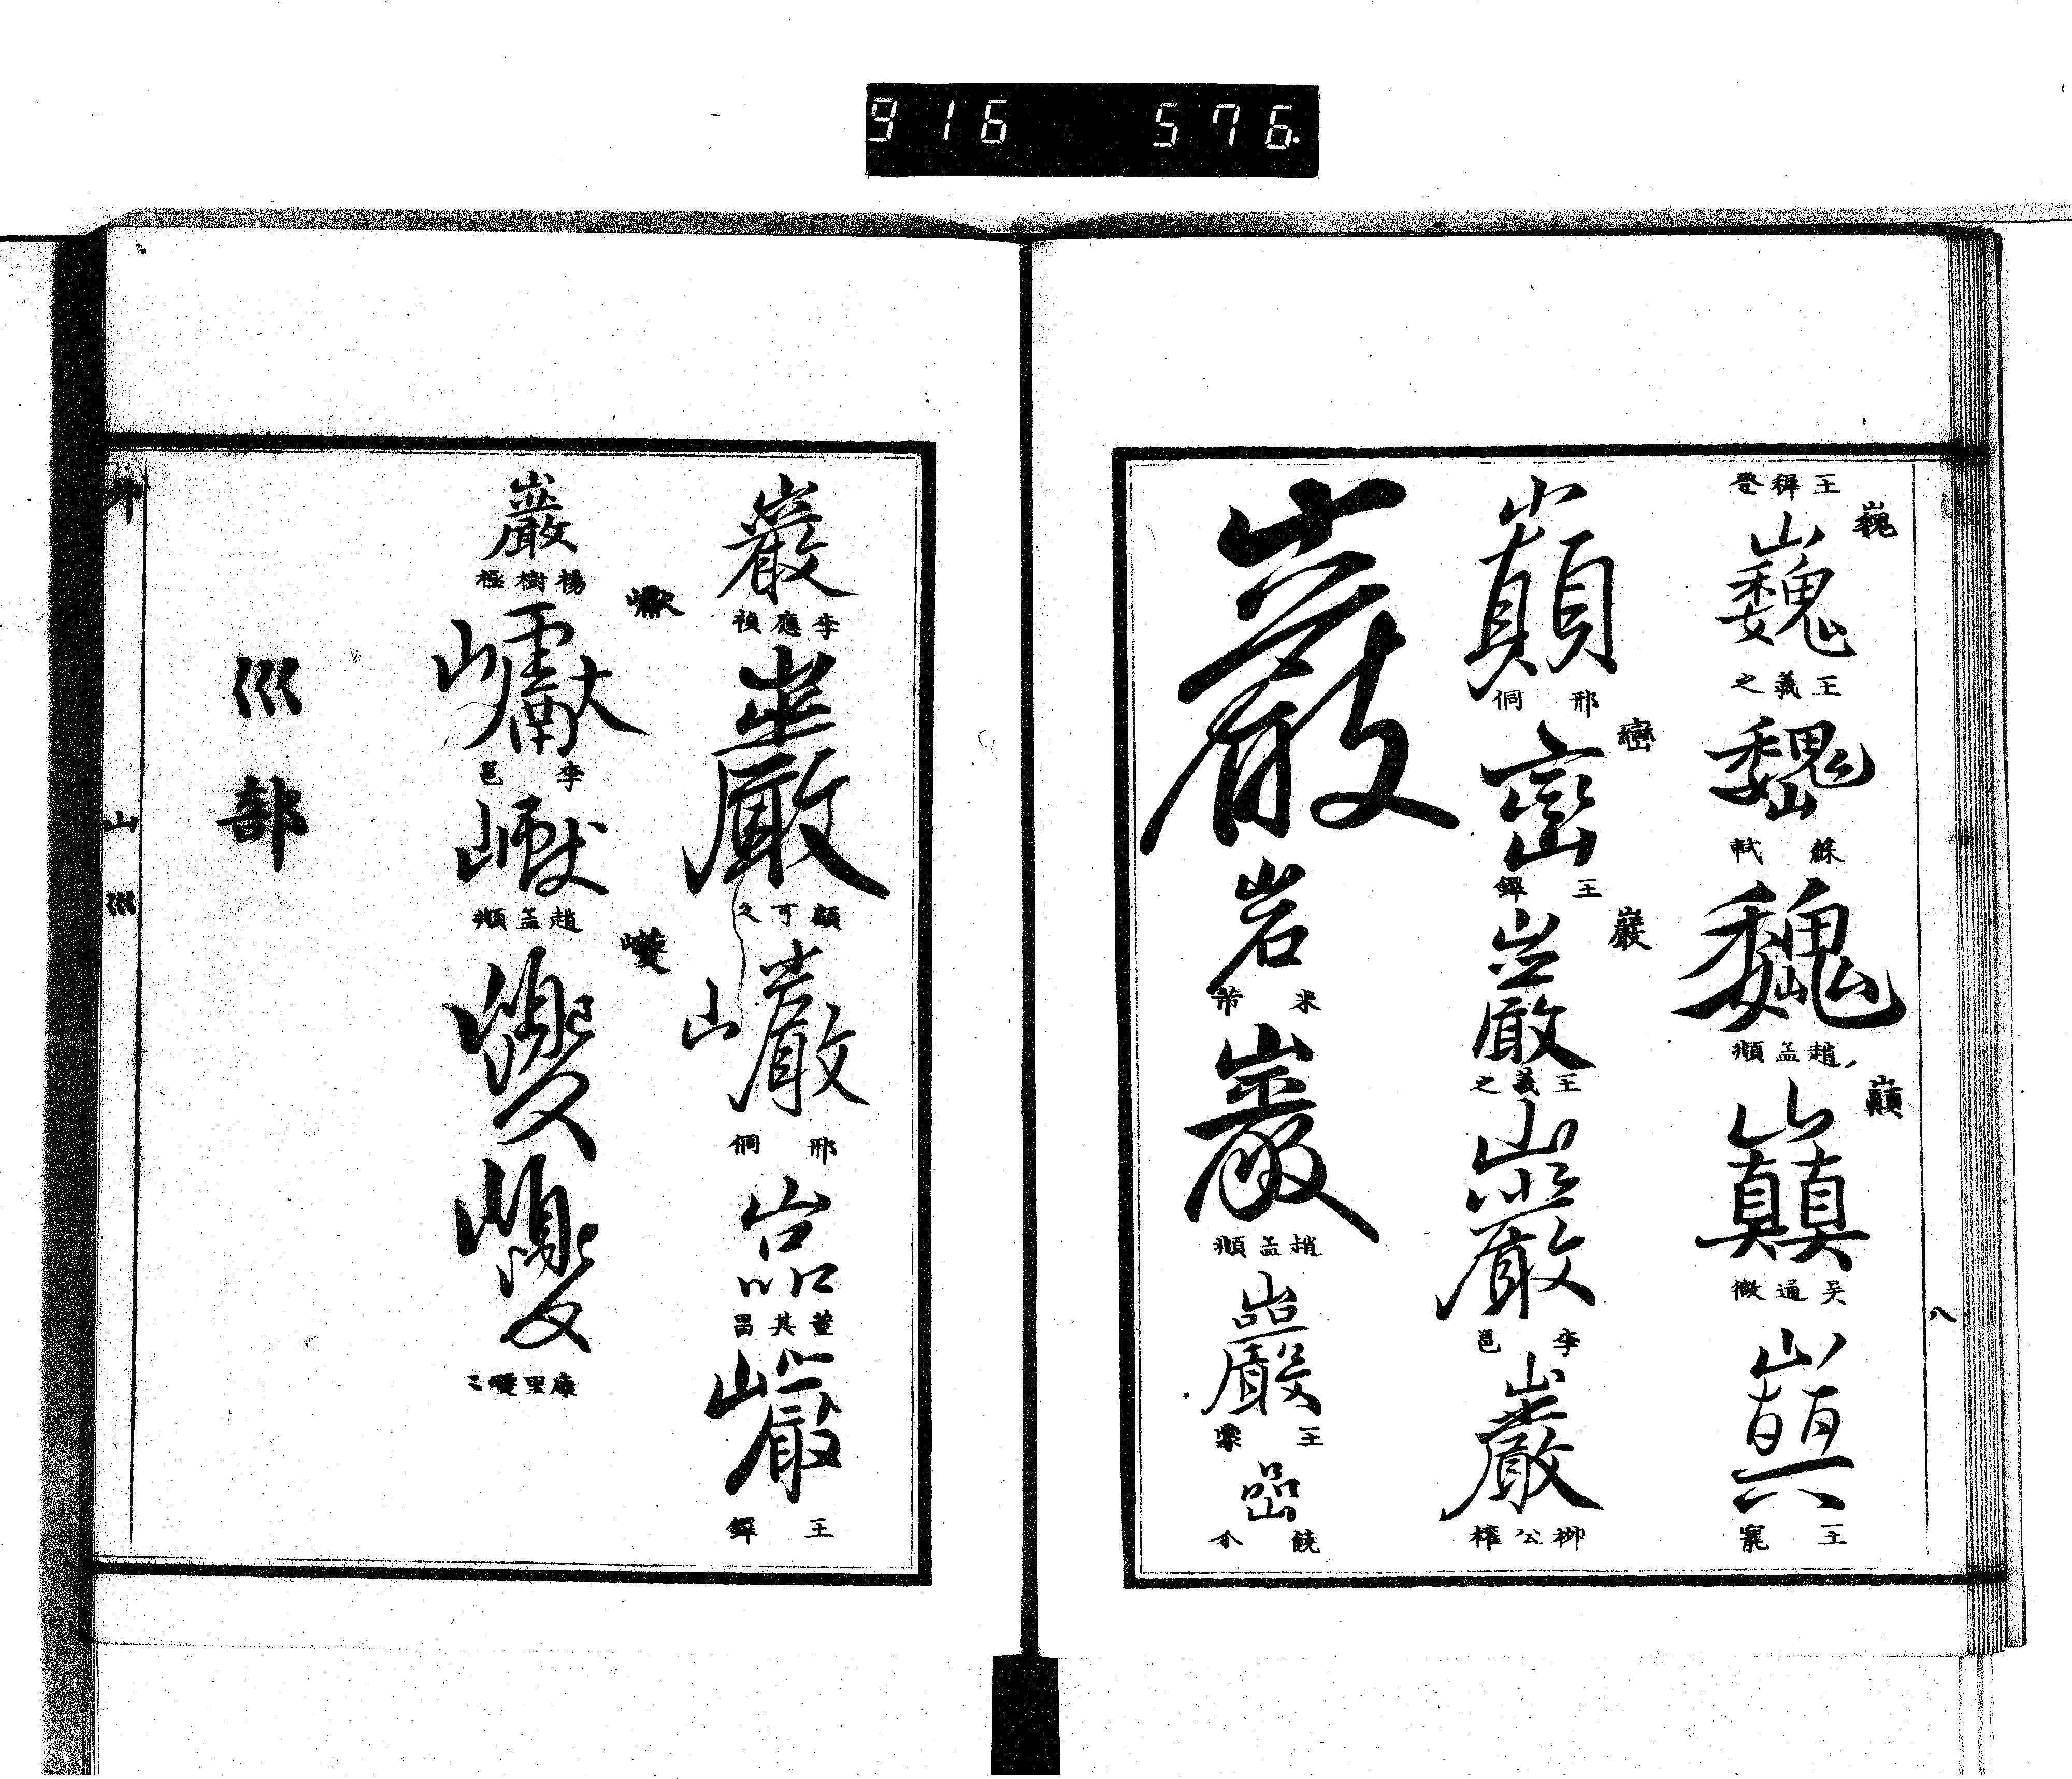 916 576.
王穉登
巍
巍
王羲之
巍
蘇軾
巍
趙孟頫
巔
巔
吳通微
巔
王寵
巔
邢侗
巒
巒
王鐸
巖
巖
王羲之
巖
李邕
巖
柳公權
巖
岩
米芾
巖
趙孟頫
巖
王蒙
嵒
饒介
八
巖
李應禎
巖
顧可之
巖
邢侗
巖
董其昌
巖
王鐸
巖
楊樹極
巘
巘
李邕
巘
趙孟頫
巙
巙
巙
康里巙〻
巛部
山 巛